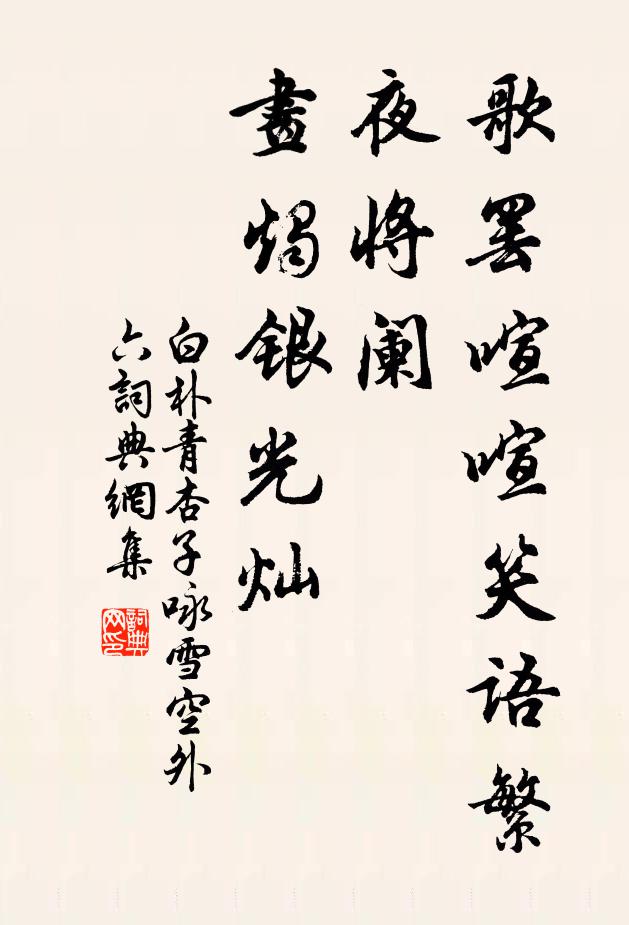 歌罢喧喧笑语繁
夜将阑
畫烛银光灿
白朴青杏子咏雪空外
六詞典網集
詞典网印